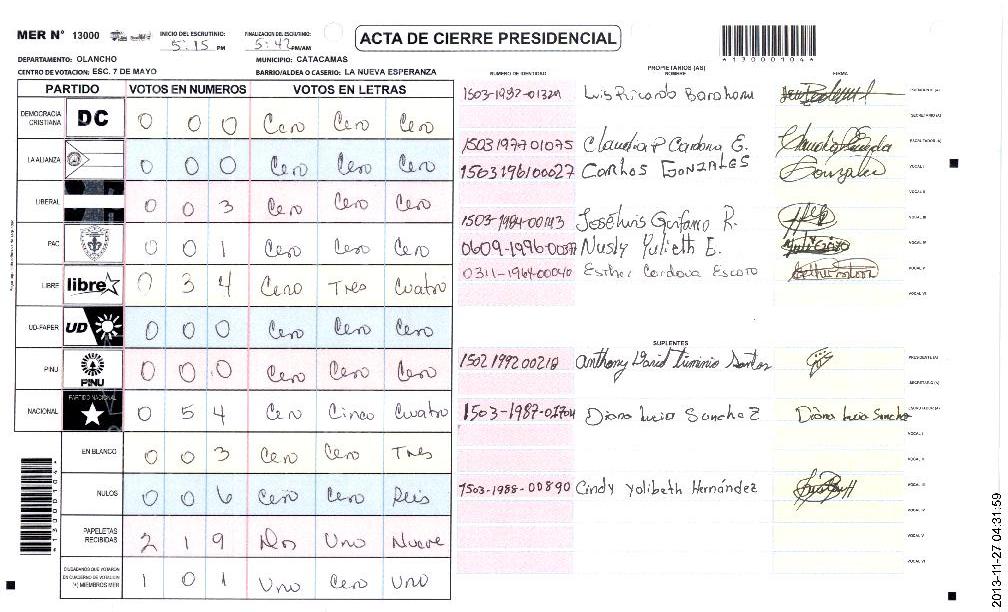 MER N° 13000 INICIO DEL ESCRUTINIO: 5:15 PM FINALIZACION DEL ESCRUTINIO: 5:42 PM/AM
ACTA DE CIERRE PRESIDENCIAL
*13000104*
DEPARTAMENTO: OLANCHO MUNICIPIO: CATACAMAS
CENTRO DE VOTACION: ESC. 7 DE MAYO BARRIO/ALDEA O CASERIO: LA NUEVA ESPERANZA
PARTIDO VOTOS EN NUMEROS VOTOS EN LETRAS
DEMOCRACIA CRISTIANA DC 0 0 0 Cero Cero Cero
LA ALIANZA 0 0 0 Cero Cero Cero
LIBERAL 0 0 3 Cero Cero Cero
PAC 0 0 1 Cero Cero Cero
LIBRE libre 0 3 4 Cero Tres Cuatro
UD-FAPER UD 0 0 0 Cero Cero Cero
PINU PINU 0 0 0 Cero Cero Cero
NACIONAL PARTIDO NACIONAL 0 5 4 Cero Cinco Cuatro
EN BLANCO 0 0 3 Cero Cero Tres
NULOS 0 0 6 Cero Cero Seis
PAPELETAS RECIBIDAS 2 1 9 Dos Uno Nueve
CIUDADANOS QUE VOTARON EN CUADERNO DE VOTACION (+) MIEMBROS MER 1 0 1 Uno Cero Uno
*13000104*
PROPIETARIOS (AS)
NUMERO DE IDENTIDAD NOMBRE FIRMA
1503-1997-01329 Luis Ricardo Barahona PRESIDENTE (A)
SECRETARIO (A)
1503197701075 Claudia P Cardona G. ESCRUTADOR (A)
1503196100027 Carlos Gonzales Gonzales VOCAL I
VOCAL II
1503-1984-00143 José Luis R. VOCAL III
0609-1996-00 Nusly Yulieth E. VOCAL IV
0311-1964-00040 Esther Cordova Escoto VOCAL V
VOCAL VI
SUPLENTES
1502199200218 Anthony David Santos PRESIDENTE (A)
SECRETARIO (A)
1503-1987-01704 Diana Lucia Sanchez Diana Lucia Sanchez ESCRUTADOR (A)
VOCAL I
VOCAL II
1503-1988-00890 Cindy Yolibeth Hernández VOCAL III
VOCAL IV
VOCAL V
VOCAL VI
2013-11-27 04:31:59